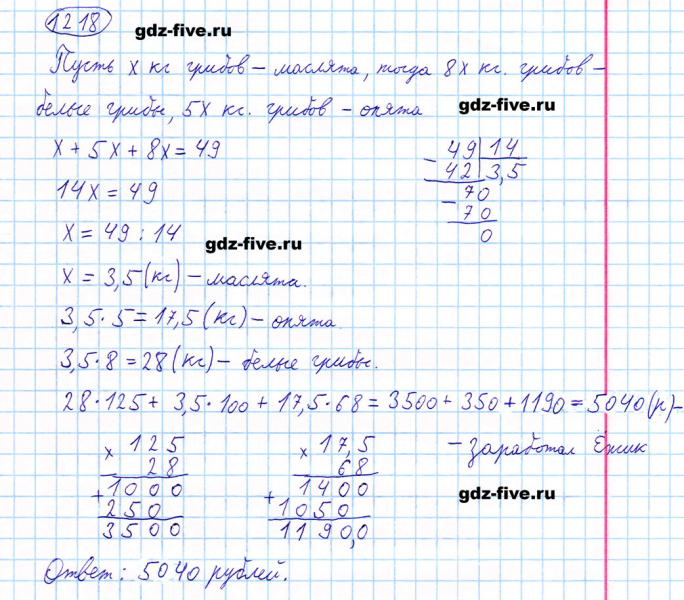 1218
gdz-five.ru
Пусть x кг грибов – маслята, тогда 8x кг. грибов –
белые грибы, 5x кг. грибов – опята
gdz-five.ru
x + 5x + 8x = 49
14x = 49
x = 49 : 14
gdz-five.ru
x = 3,5 (кг) – маслята.
3,5 · 5 = 17,5 (кг) – опята.
3,5 · 8 = 28 (кг) – белые грибы.
49 14
– 42 3,5
– 70
70
0
28 · 125 + 3,5 · 100 + 17,5 · 68 = 3500 + 350 + 1190 = 5040 (р) –
– заработал Ёжик
× 125
28
+ 1000
250
3500
× 17,5
68
+ 1400
1050
1190,0
gdz-five.ru
Ответ: 5040 рублей.